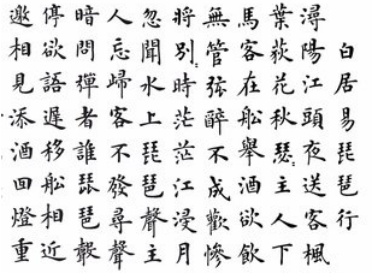 白居易琵琶行
潯陽江頭夜送客楓
葉荻花秋瑟〻主人下
馬客在船舉酒欲飲
無管弦醉不成歡慘
將別〻時茫茫江浸月
忽聞水上琵琶聲主
人忘歸客不發尋聲
暗問彈者誰琵琶聲
停欲語遲移船相近
邀相見添酒回燈重